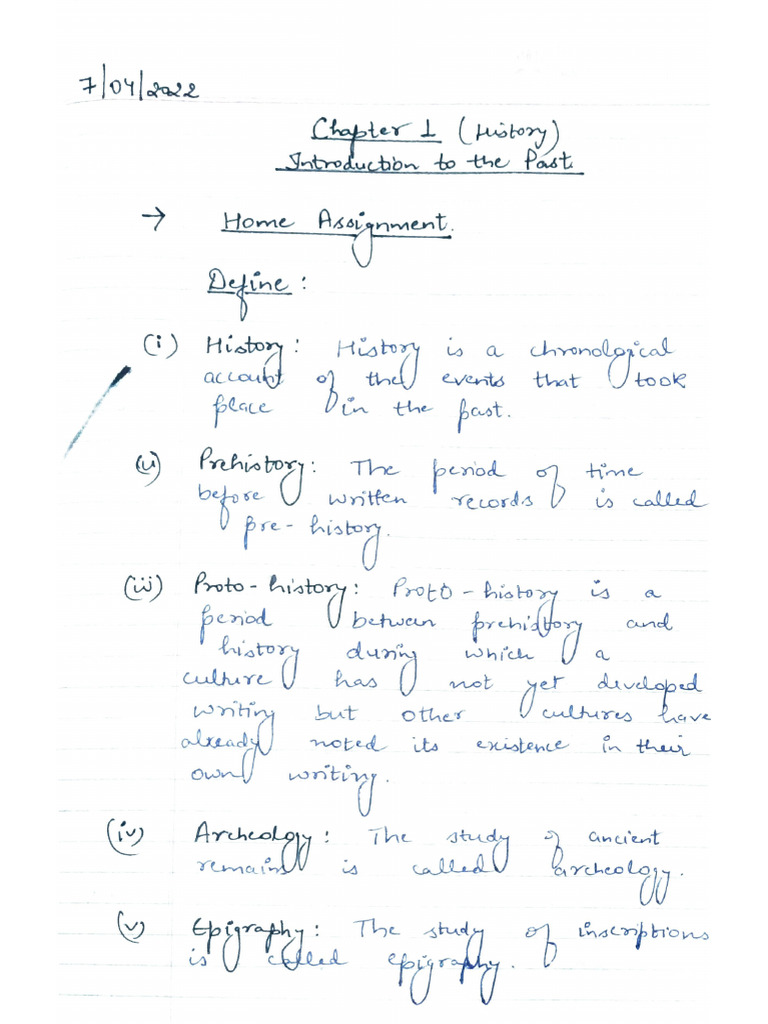 7/04/2022
Chapter 1 (History)
Introduction to the Past.
→ Home Assignment.
Define :
(i) History : History is a chronological
account of the events that took
place in the past.
(ii) Prehistory : The period of time
before written records is called
pre-history.
(iii) Proto-history : Proto-history is a
period between prehistory and
history during which a
culture has not yet developed
writing but other cultures have
already noted its existence in their
own writing.
(iv) Archeology : The study of ancient
remains is called archeology.
(v) Epigraphy : The study of inscriptions
is called epigraphy.